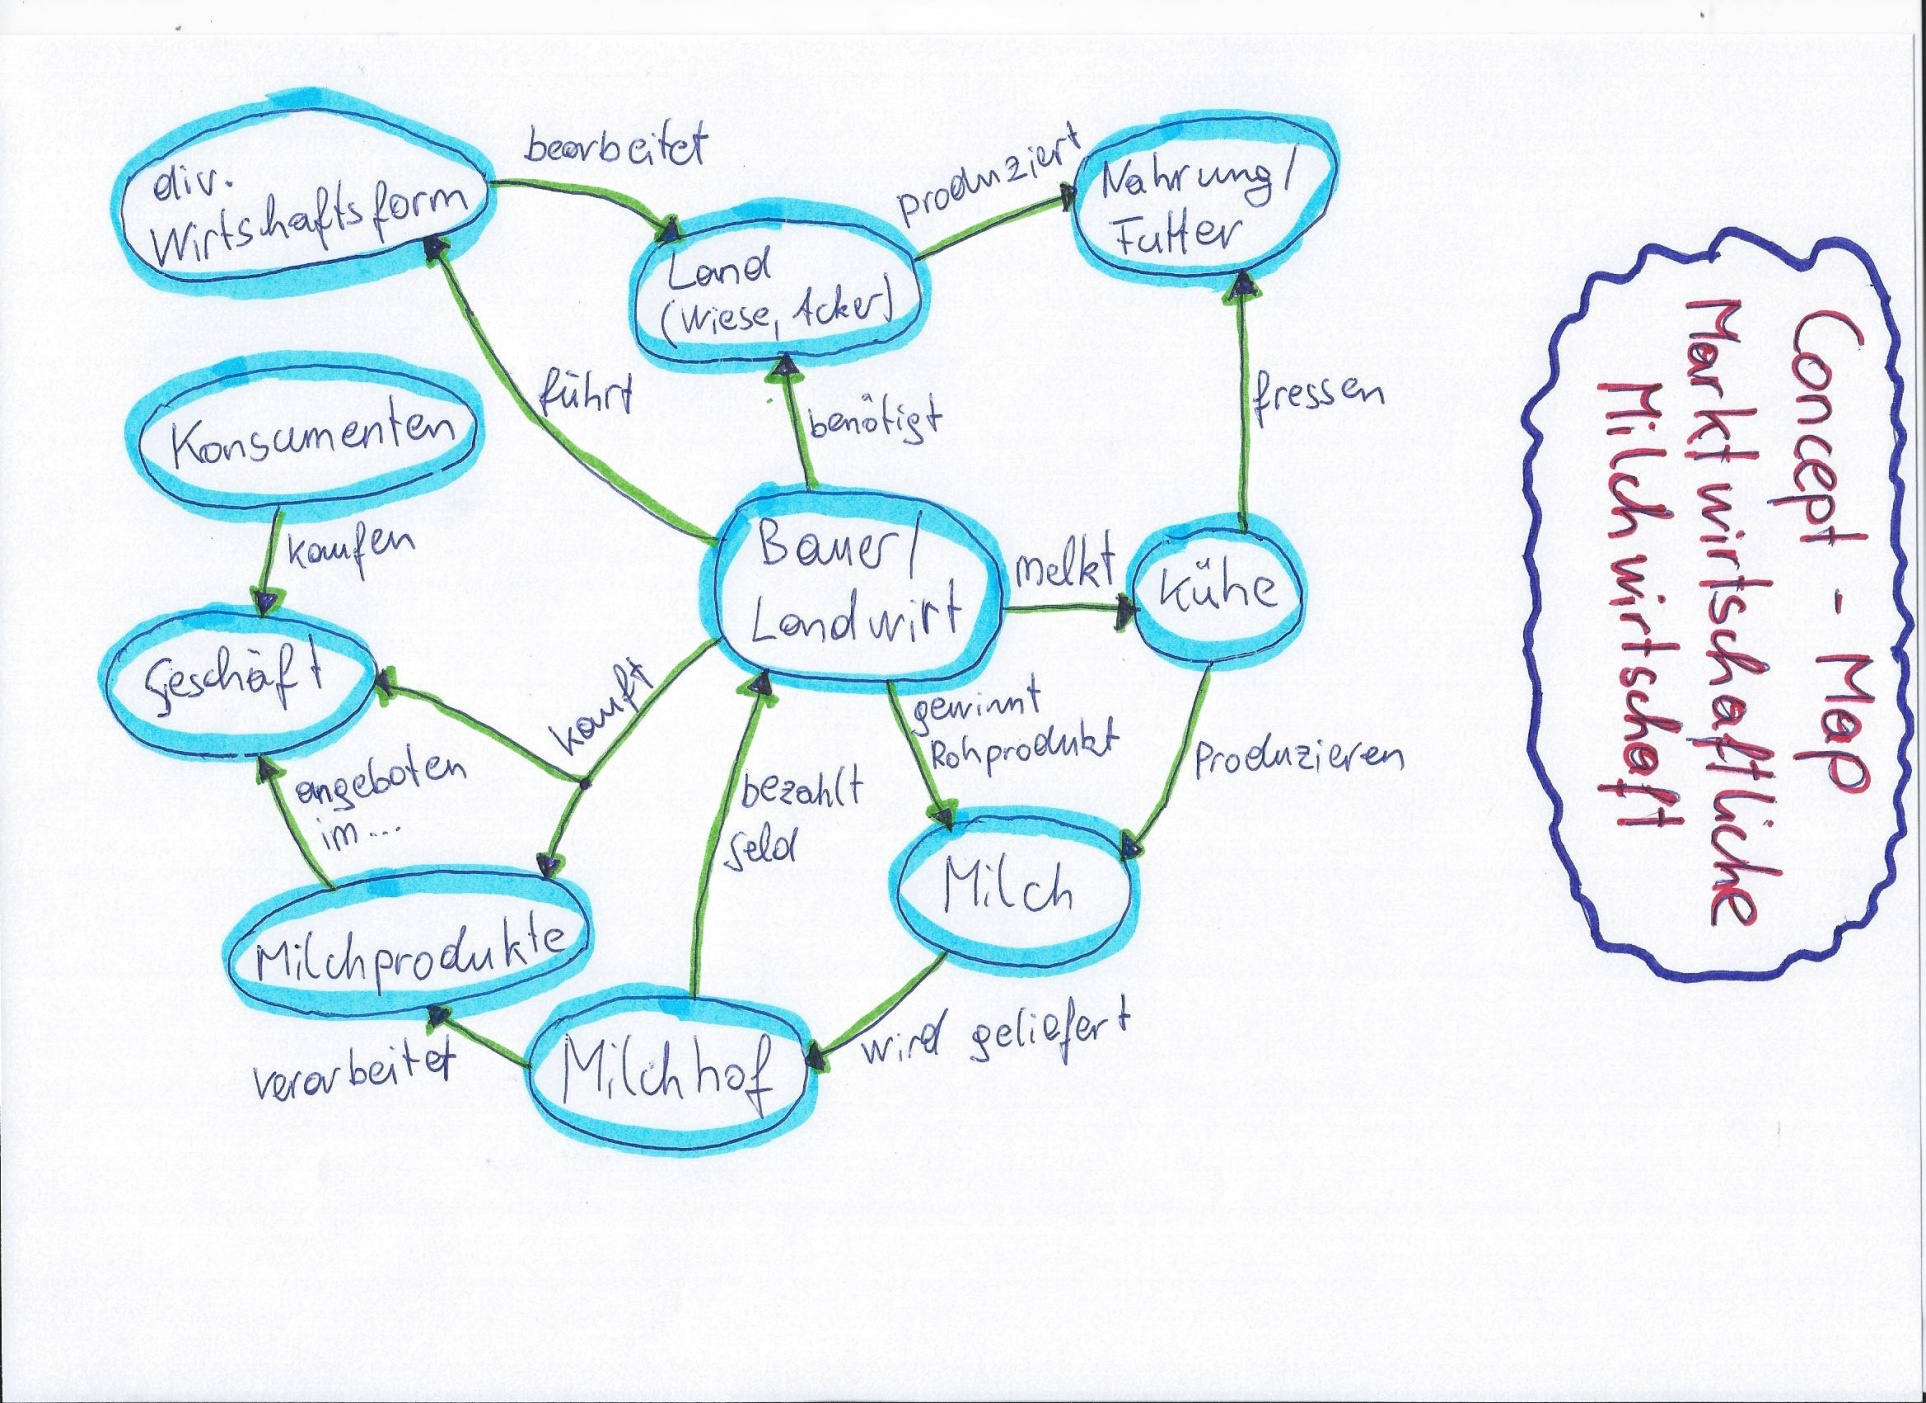 Concept - Map
Marktwirtschaftliche
Milchwirtschaft
div.
Wirtschaftsform
bearbeitet
Land
(Wiese, Acker)
produziert
Nahrung/
Futter
führt
benötigt
fressen
Konsumenten
kaufen
Bauer/
Landwirt
melkt
Kühe
Geschäft
kauft
gewinnt
Rohprodukt
Produzieren
angeboten
im...
bezahlt
Geld
Milch
Milchprodukte
verarbeitet
Milchhof
wird geliefert